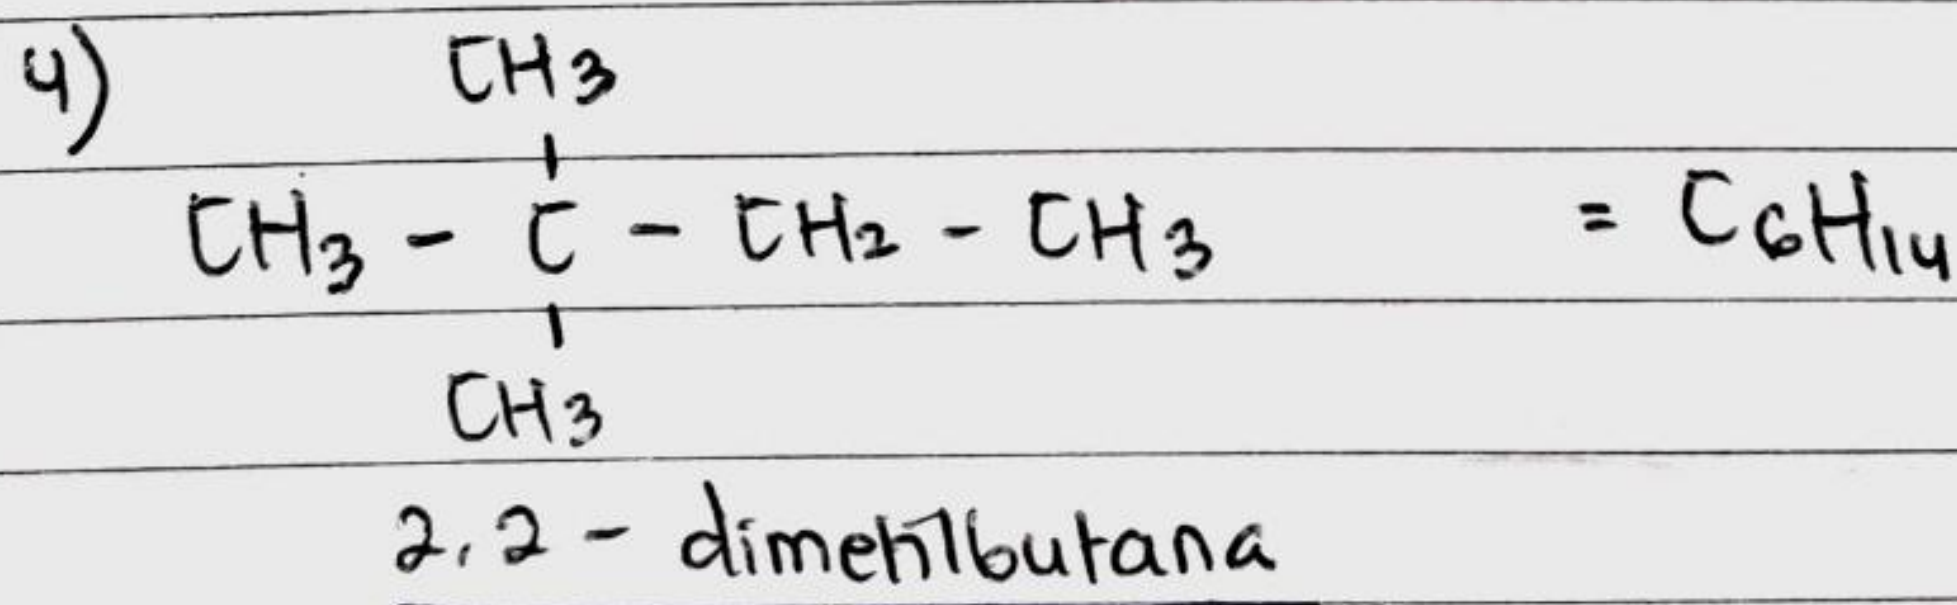 4)
CH3
CH3 - C - CH2 - CH3 = C6H14
CH3
2,2 - dimetilbutana